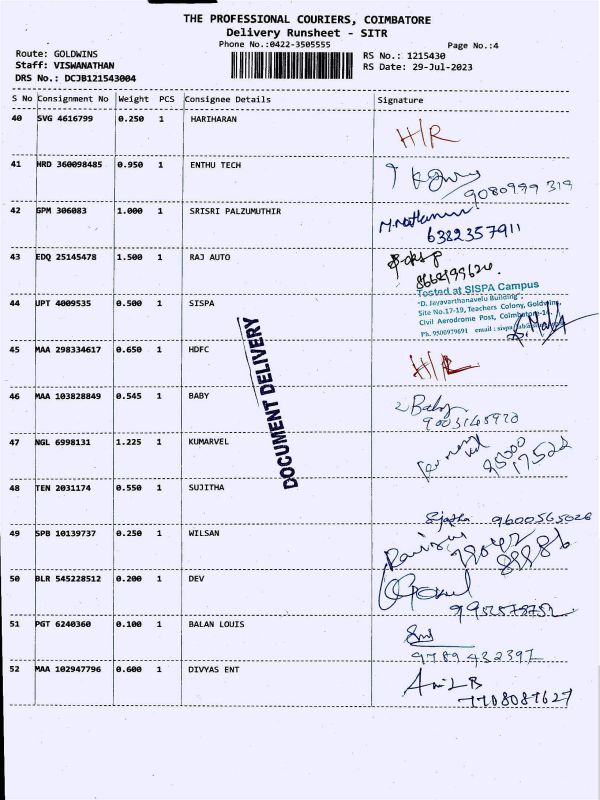 THE PROFESSIONAL COURIERS, COIMBATORE
Delivery Runsheet - SITR
Phone No.:0422-3505555
Page No.:4
Route: GOLDWINS
RS No.: 1215430
Staff: VISWANATHAN
RS Date: 29-Jul-2023
DRS No.: DCJB121543004
S No Consignment No Weight PCS Consignee Details Signature
40 SVG 4616799 0.250 1 HARIHARAN H/R
41 HRD 360098485 0.950 1 ENTHU TECH
9080999 319
42 GPM 306083 1.000 1 SRISRI PALZUMUTHIR
6382357911
43 EDQ 25145478 1.500 1 RAJ AUTO
Tested at SISPA Campus
"D. Jayavarthanavelu Building",
44 UPT 4009535 0.500 1 SISPA
Site No.17-19, Teachers Colony, Goldwins,
Civil Aerodrome Post, Coimbatore-14.
Ph. 9500979691 email : sispa
DOCUMENT DELIVERY
45 MAA 298334617 0.650 1 HDFC H/R
46 MAA 103828849 0.545 1 BABY Baby
47 NGL 6998131 1.225 1 KUMARVEL
95000
17522
48 TEN 2031174 0.550 1 SUJITHA
9600565026
49 SPB 10139737 0.250 1 WILSAN
50 BLR 545228512 0.200 1 DEV
51 PGT 6240360 0.100 1 BALAN LOUIS
9789432397
52 MAA 102947796 0.600 1 DIVYAS ENT
7708087627